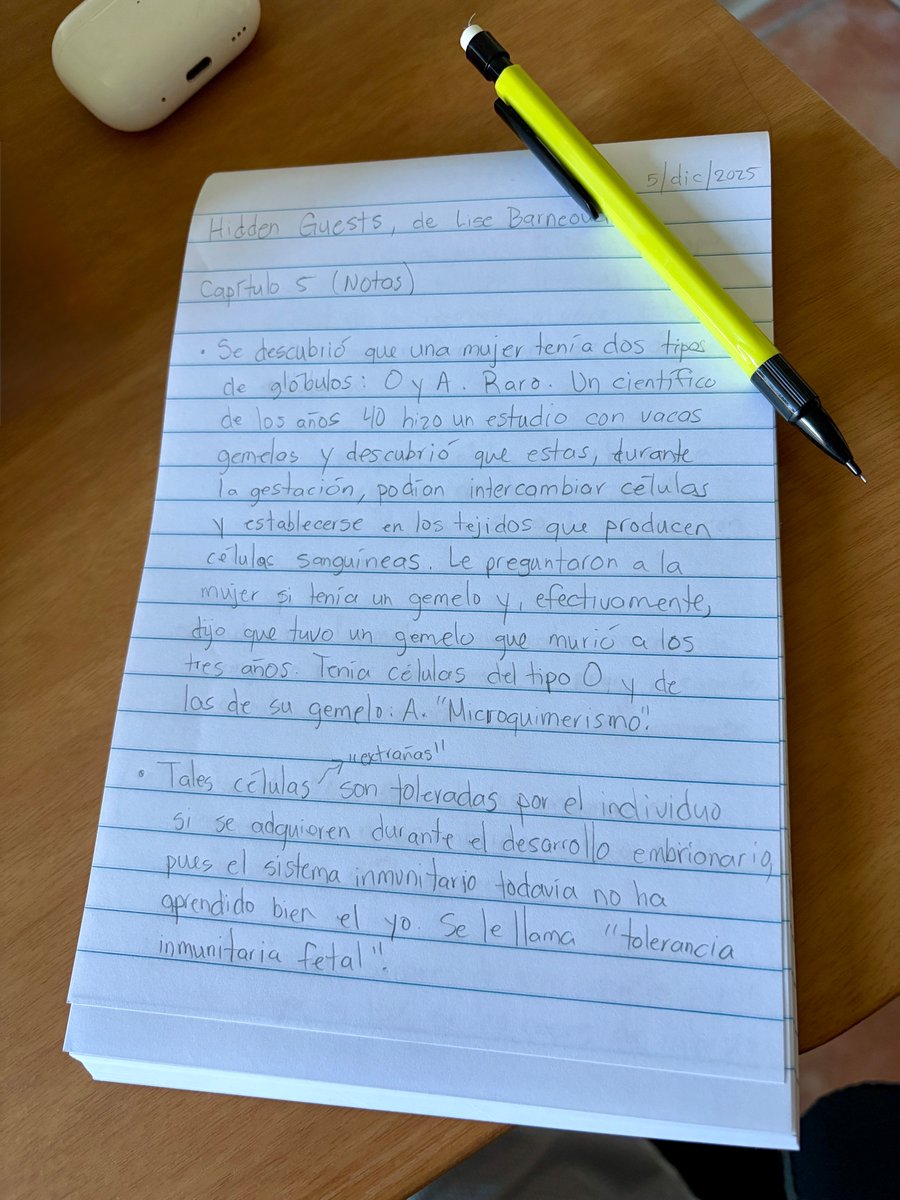 5/dic/2025
Hidden Guests, de Lise
Capítulo 5 (Notas)
• Se descubrió que una mujer tenía dos tipos
de glóbulos: O y A. Raro. Un científico
de los años 40 hizo un estudio con vacas
gemelas y descubrió que estas, durante
la gestación, podían intercambiar células
y establecerse en los tejidos que producen
células sanguíneas. Le preguntaron a la
mujer si tenía un gemelo y, efectivamente,
dijo que tuvo un gemelo que murió a los
tres años. Tenía células del tipo O y de
las de su gemelo: A. "Microquimerismo".
"extrañas"
• Tales células son toleradas por el individuo
si se adquieren durante el desarrollo embrionario,
pues el sistema inmunitario todavía no ha
aprendido bien el yo. Se le llama "tolerancia
inmunitaria fetal".